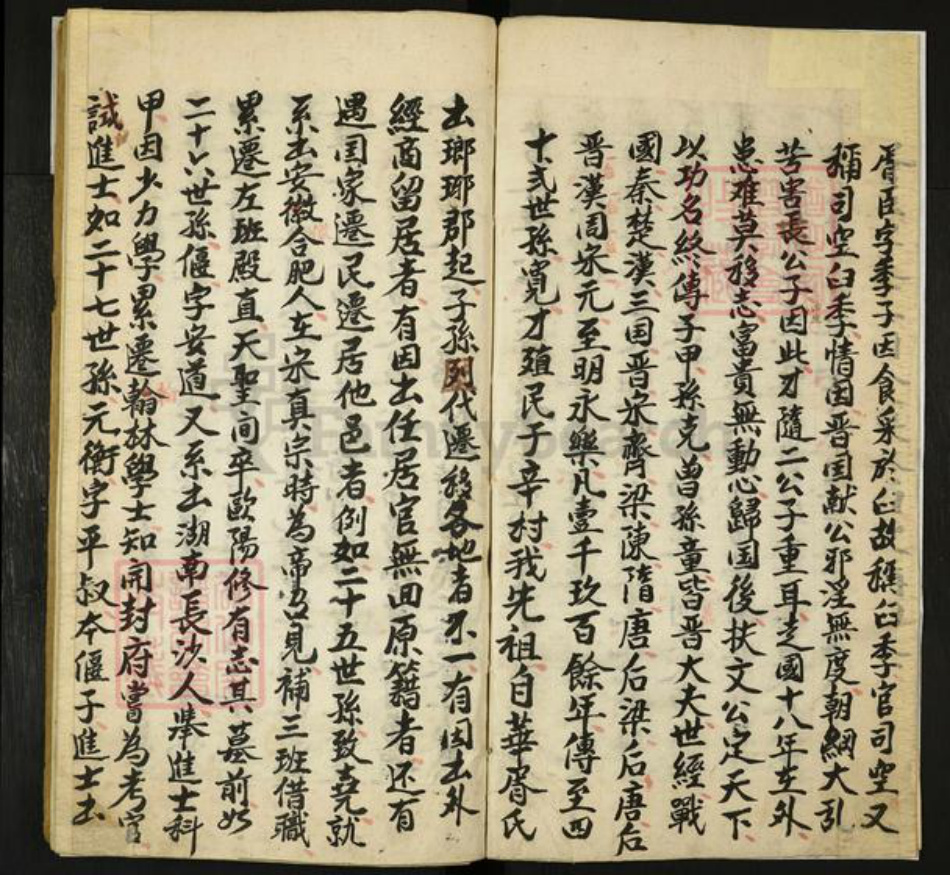 胥臣字季子因食采於臼故稱臼季官司空又
稱司空臼季情因晋国献公邪淫無度朝綱大乱
苦害長公子因此才隨二公子重耳走國十八年在外
患难莫移志富貴無動心歸国後扶文公定天下
以功名終傳子甲孫克曽孫童皆晋大夫世經戰
國秦楚漢三国晋宋齊梁陳隋唐后梁后唐后
晋漢周宋元至明永樂凡壹千玖百餘年傳至四
十弍世孫寛才殖民于辛村我先祖自華胥氏
出瑯琊郡起子孫列代遷移各地者不一有因出外
經商留居者有因出任居官無回原籍者还有
遇国家遷民遷居他邑者例如二十五世孫致堯就
系出安徽合肥人在宋真宗時為帝召見補三班借職
累遷左班殿直天聖间卒歐陽修有志其墓前如
二十六世孫偃字安道又系出湖南長沙人舉進士科
甲因少力學累遷翰林學士知開封府嘗為考官
試進士如二十七世孫元衡字平叔本偃子進士出